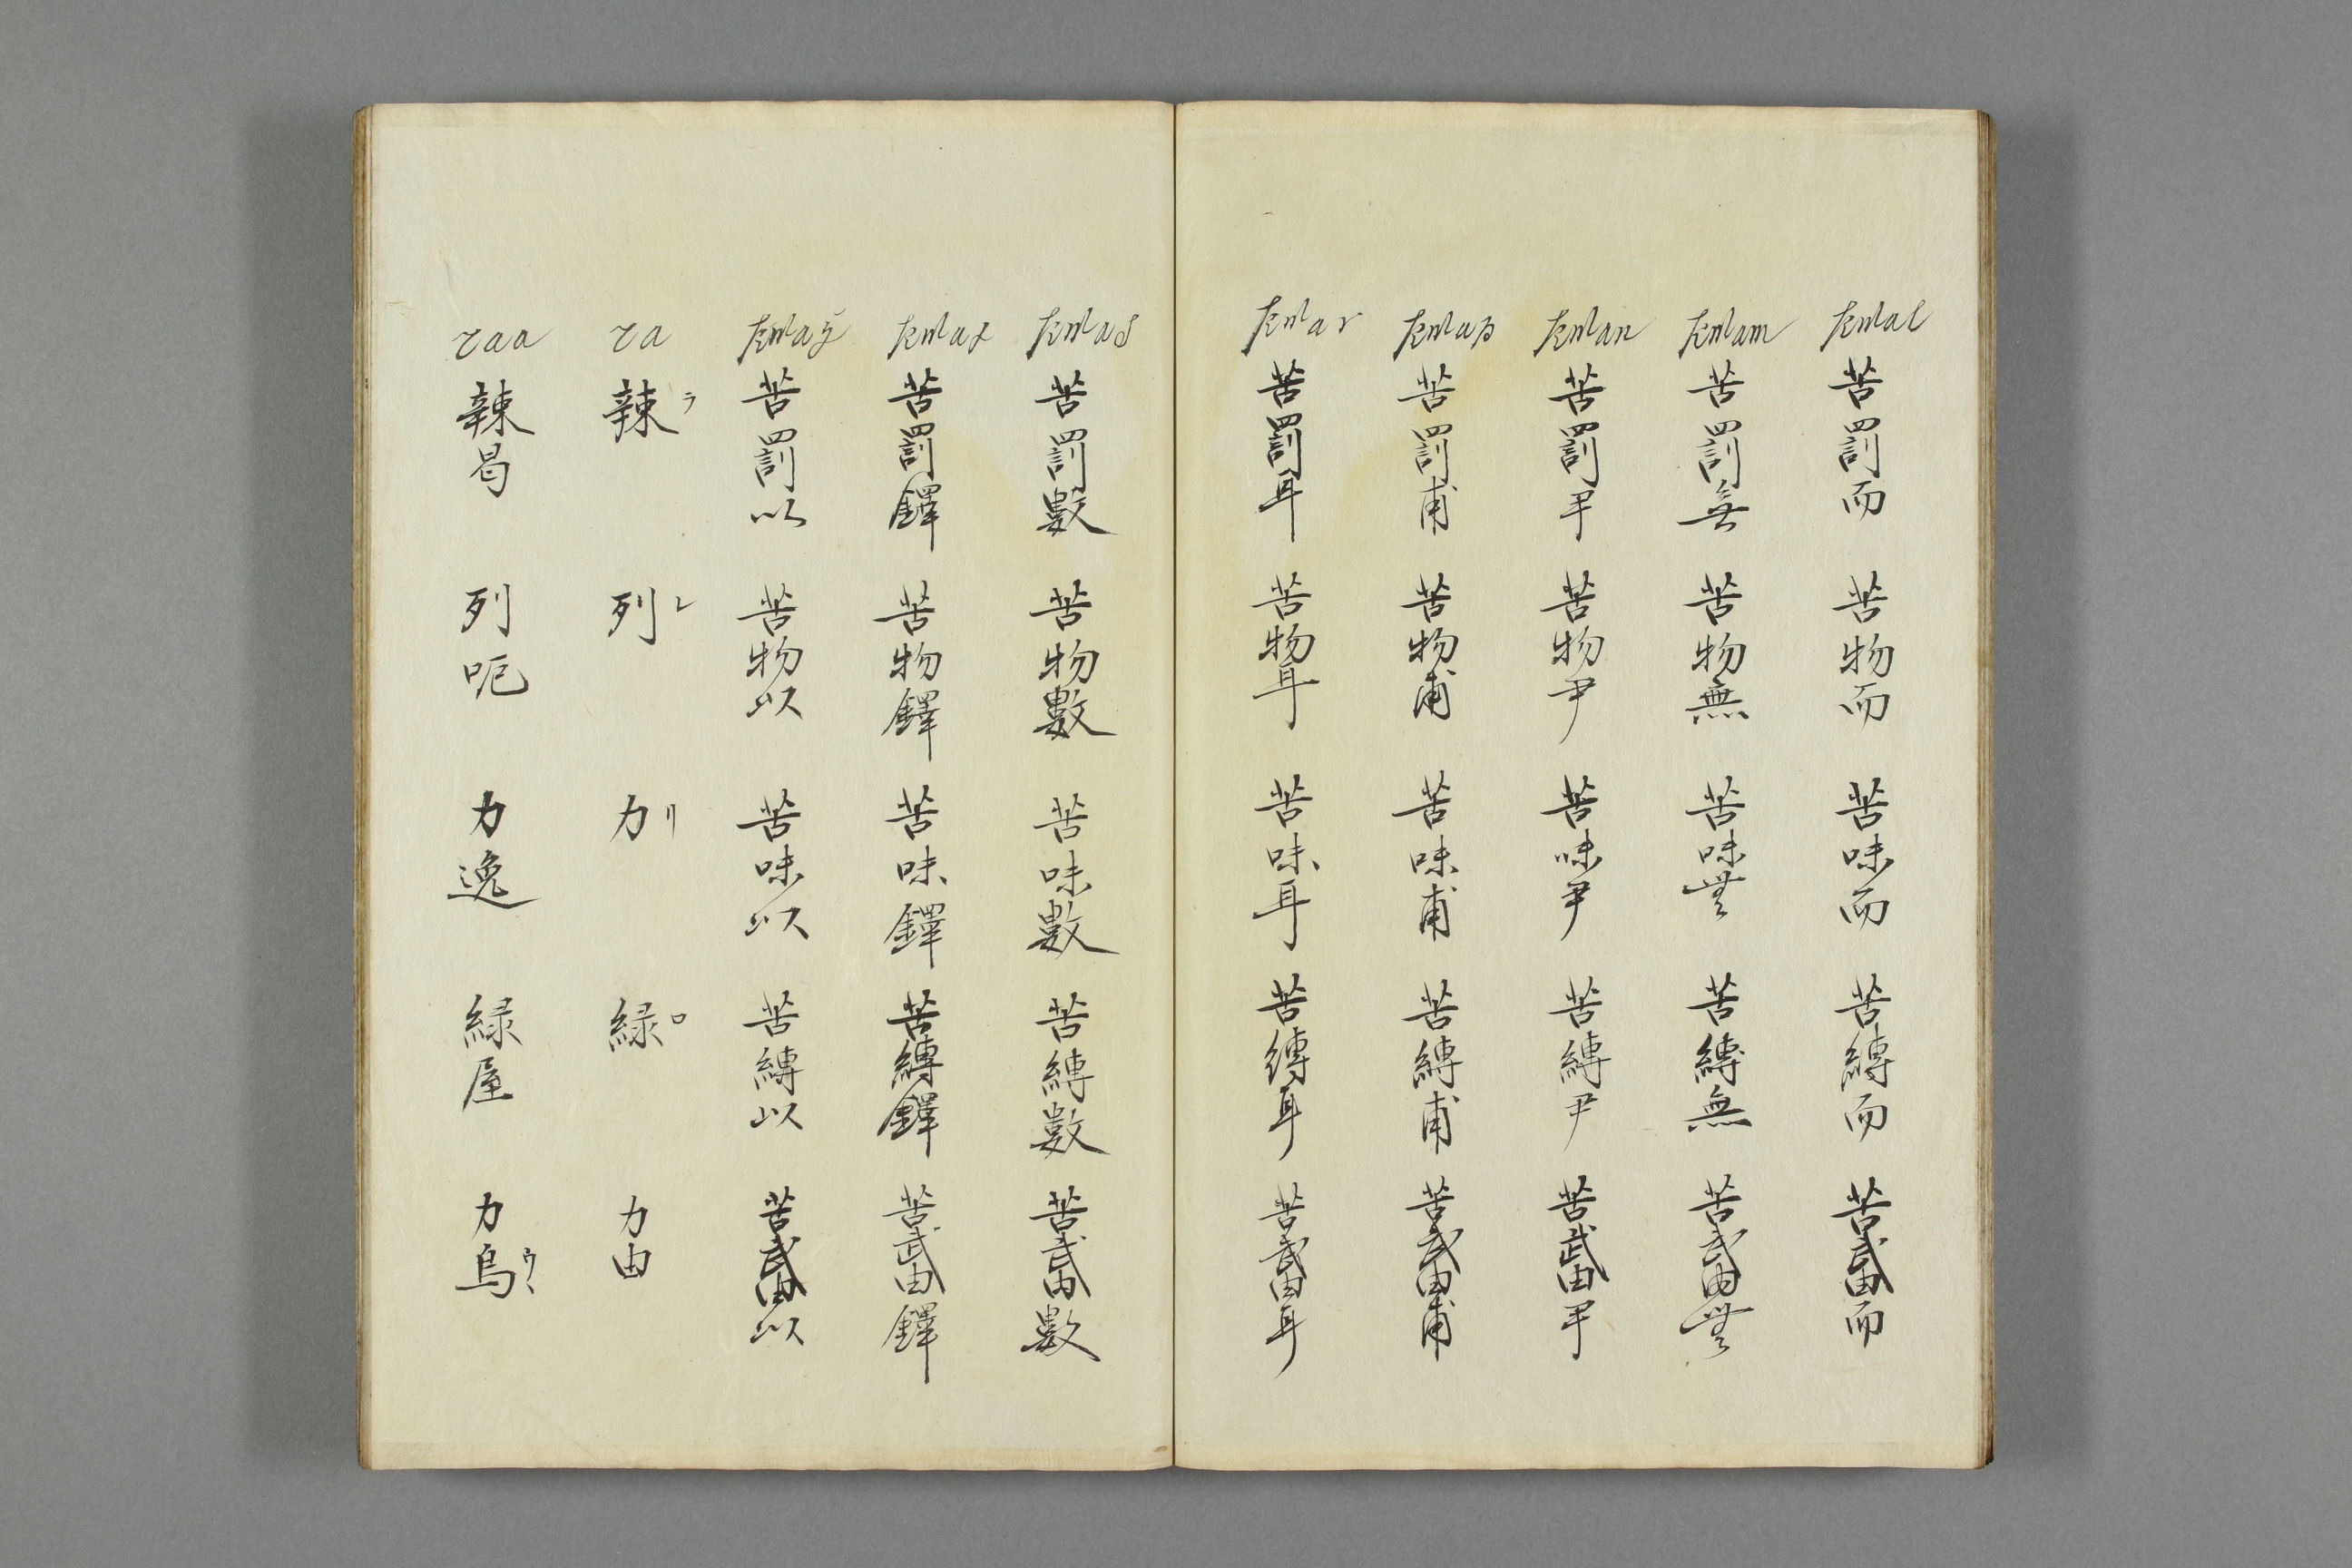 kwal 苦罰而 苦物而 苦味而 苦縛而 苦武由而
kwam 苦罰無 苦物無 苦味無 苦縛無 苦武由無
kwan 苦罰尹 苦物尹 苦味尹 苦縛尹 苦武由尹
kwap 苦罰甫 苦物甫 苦味甫 苦縛甫 苦武由甫
kwar 苦罰耳 苦物耳 苦味耳 苦縛耳 苦武由耳
kwas 苦罰數 苦物數 苦味數 苦縛數 苦武由數
苦罰鐸 苦物鐸 苦味鐸 苦縛鐸 苦武由鐸
kwaÿ 苦罰以 苦物以 苦味以 苦縛以 苦武由以
ra 辣ラ 列レ 力リ 緑ロ 力由
raa 辣曷 列呃 力逸 緑屋 力烏ウヽ